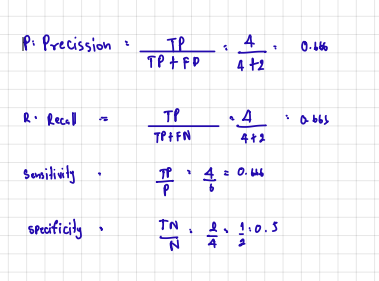 P: Precission = TP / TP + FP = 4 / 4+2 = 0.666
R. Recall = TP / TP+FN = 4 / 4+2 =
Sensitivity = TP / P = 4 / 6 = 0.666
Specificity = TN / N = 2 / 4 = 1 / 2 = 0.5